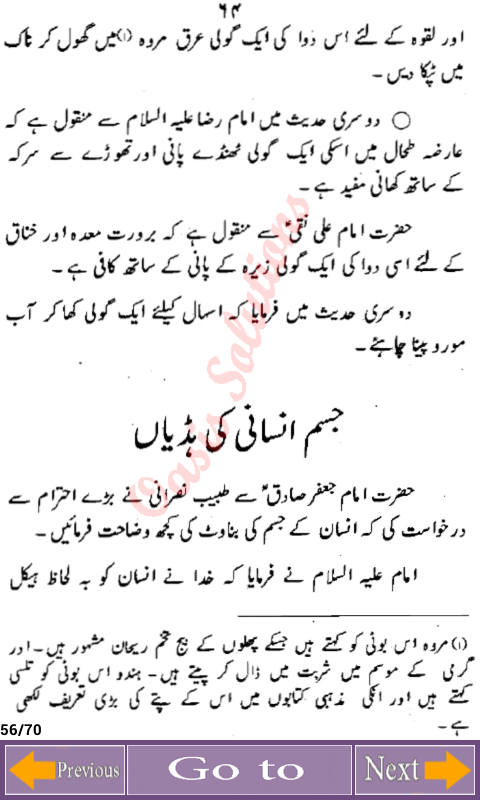 ۶۴
اور لقوہ کے لئے اس دوا کی ایک گولی عرق مروہ (۱) میں گھول کر ناک
میں ٹپکا دیں۔
○ دوسری حدیث میں امام رضا علیہ السلام سے منقول ہے کہ
عارضہ طحال میں اسکی ایک گولی ٹھنڈے پانی اور تھوڑے سے سرکہ
کے ساتھ کھانی مفید ہے۔
حضرت امام علی نقیؑ سے منقول ہے کہ برورت معدہ اور خناق
کے لئے اسی دوا کی ایک گولی زیرہ کے پانی کے ساتھ کافی ہے۔
دوسری حدیث میں فرمایا کہ اسہال کیلئے ایک گولی کھا کر آب
مورو پینا چاہئے۔
جسم انسانی کی ہڈیاں
حضرت امام جعفر صادقؑ سے طبیب نصرانی نے بڑے احترام سے
درخواست کی کہ انسان کے جسم کی بناوٹ کی کچھ وضاحت فرمائیں۔
امام علیہ السلام نے فرمایا کہ خدا نے انسان کو بہ لحاظ ہیکل
(۱) مروہ اس بوٹی کو کہتے ہیں جسکے پھلوں کے بیج تخم ریحان مشہور ہیں۔ اور
گرمی کے موسم میں شربت میں ڈال کر پیتے ہیں۔ ہندو اس بوٹی کو تلسی
کہتے ہیں اور انکی مذہبی کتابوں میں اس کے پتے کی بڑی تعریف لکھی
ہے۔
Oasis Solutions
56/70
Previous
Go to
Next